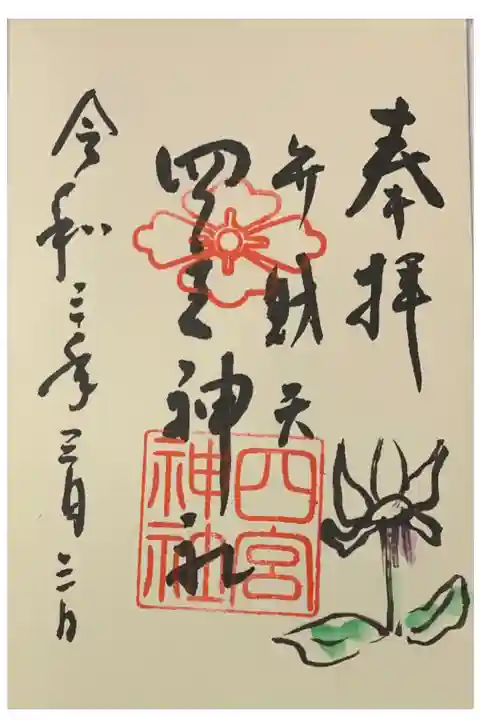 奉拝
弁財天
四宮神社
令和三年三月三日
四宮
神社